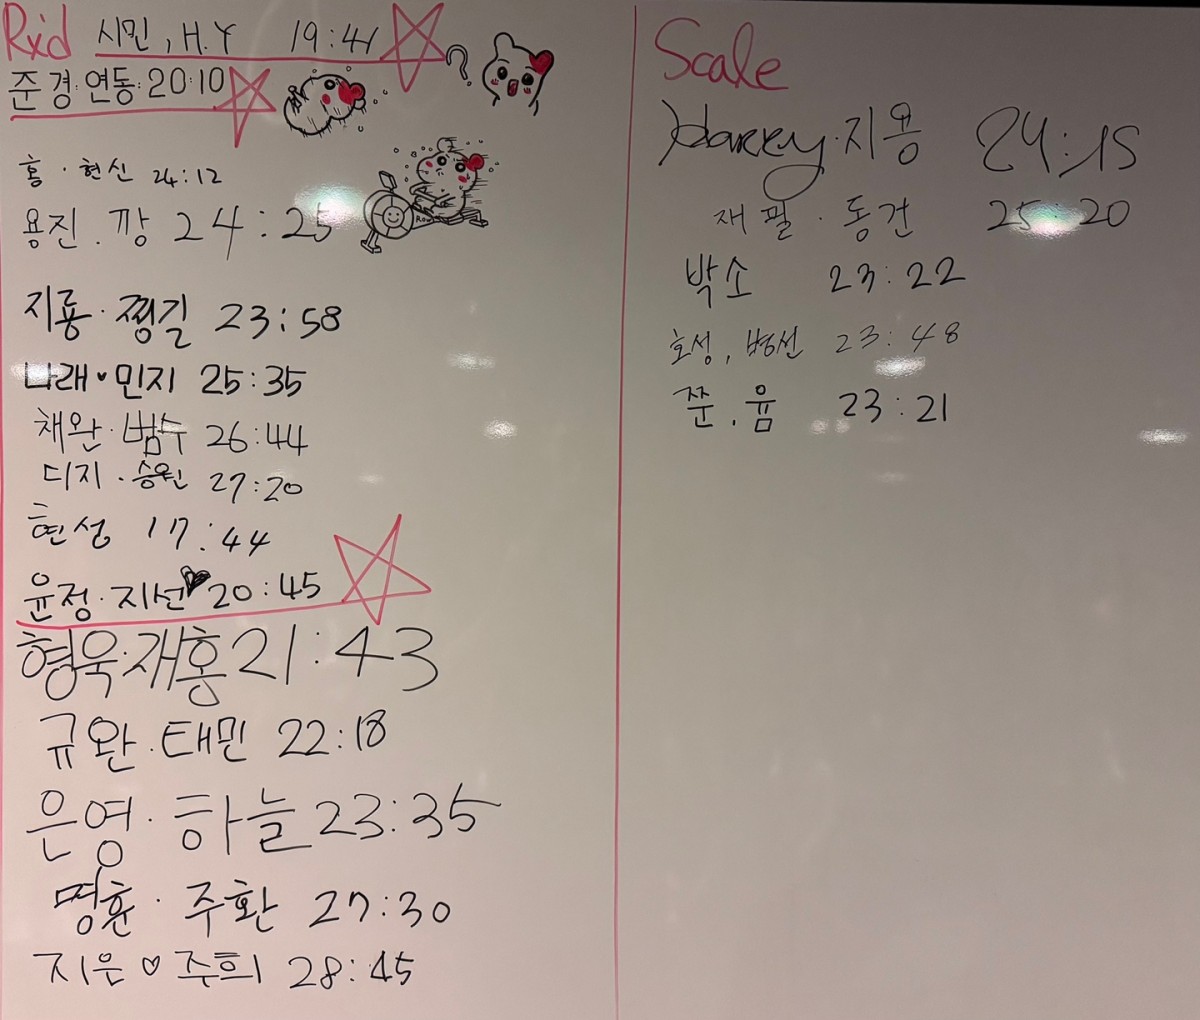 Rxd 시민, H.Y 19:41
준경·연동·20:10
?
홍·현신 24:12
용진.깡 24:25
Row
지룡·찡길 23:58
나래♥민지 25:35
채완·범수 26:44
디지·승원 27:20
현성 17:44
윤정·지선♥20:45
형욱·재홍 21:43
규완·태민 22:18
은영·하늘 23:35
명훈·주환 27:30
지은♡주희 28:45
Scale
Harry·지용 24:15
재필·동건 25:20
박소 23:22
호성, 병선 23:48
쭌.윰 23:21